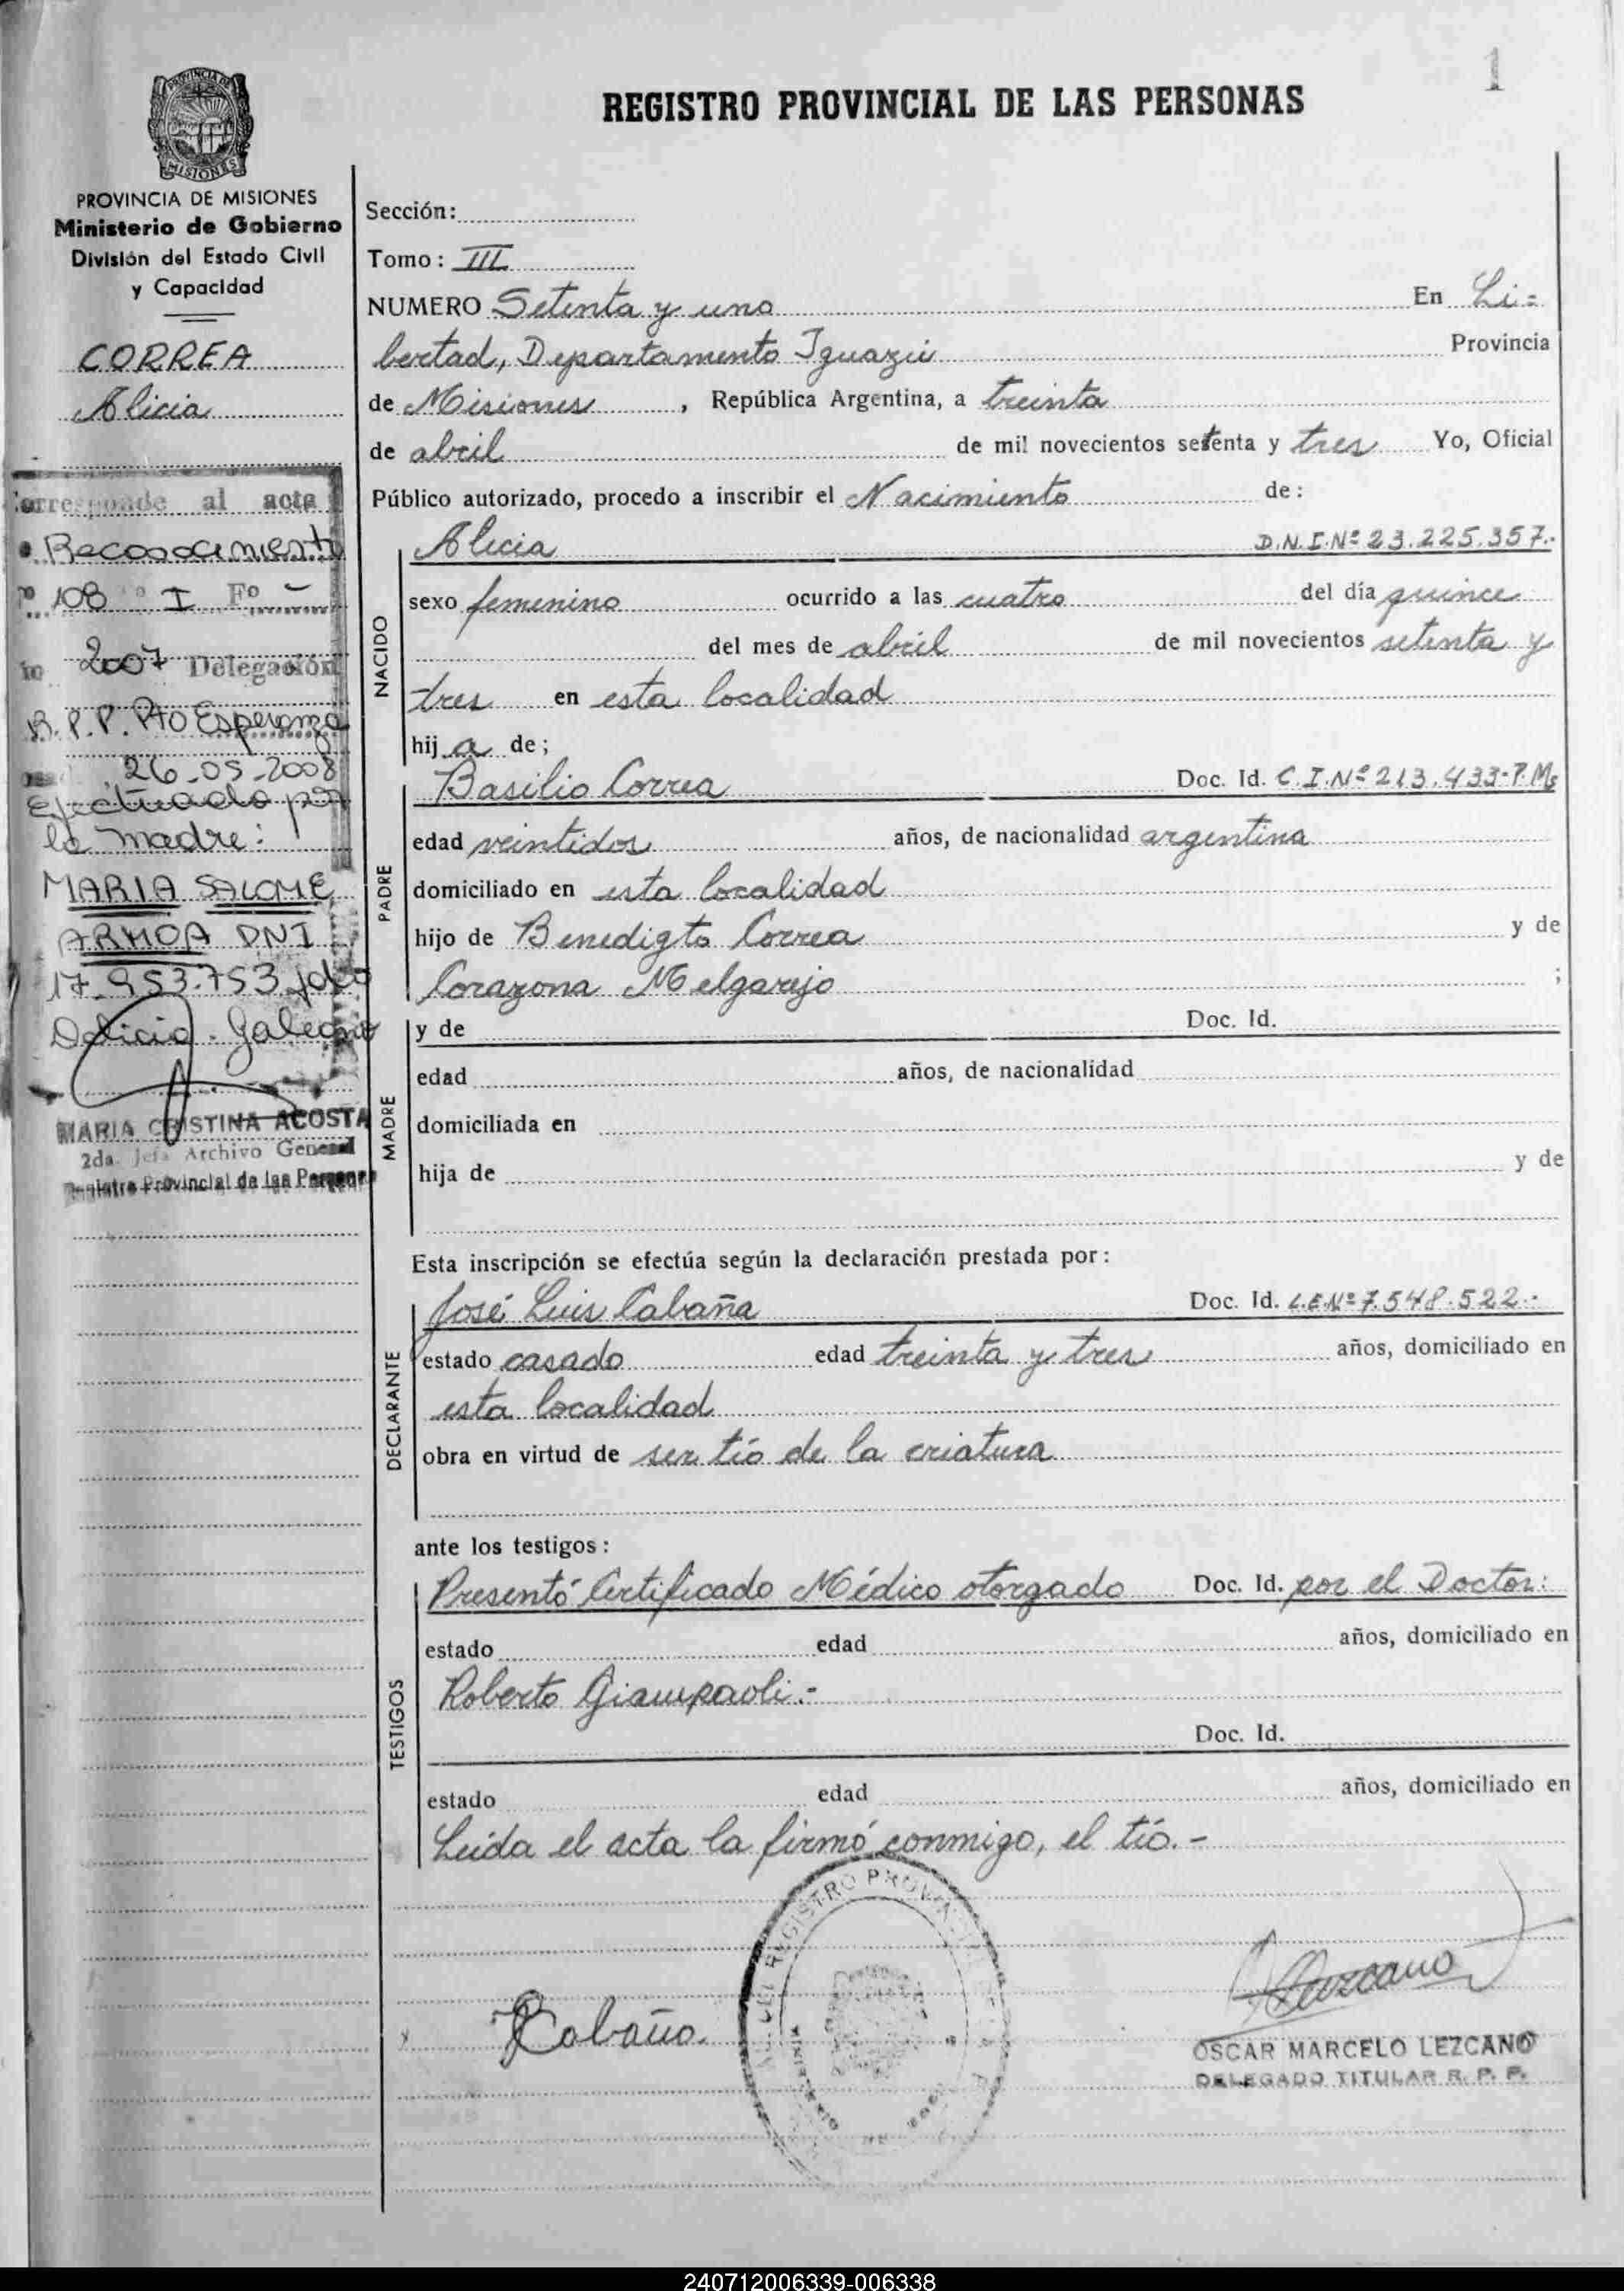 1
REGISTRO PROVINCIAL DE LAS PERSONAS
PROVINCIA DE
MISIONES
PROVINCIA DE MISIONES
Ministerio de Gobierno
División del Estado Civil
y Capacidad
CORREA
Alicia
Corresponde al acta
Reconocimiento
Nº 108 Tº I Fº -
2007 Delegación
R.P.P. Pto Esperanza
26-05-2008
Efectuado por
la madre:
MARIA SALOME
ARMOA DNI
17.953.753
Delicia. Galeano
MARIA CRISTINA ACOSTA
2da. Jefa Archivo General
Registro Provincial de las Personas
Sección:
Tomo: III
NUMERO Setenta y uno En Li=
bertad, Departamento Iguazú Provincia
de Misiones, República Argentina, a treinta
de abril de mil novecientos setenta y tres Yo, Oficial
Público autorizado, procedo a inscribir el Nacimiento de:
NACIDO
Alicia D.N.I.Nº 23.225.357.-
sexo femenino ocurrido a las cuatro del día quince
del mes de abril de mil novecientos setenta y
tres en esta localidad
hija de;
PADRE
Basilio Correa Doc. Id. C.I.Nº 213.433-P.Ms
edad veintidos años, de nacionalidad argentina
domiciliado en esta localidad
hijo de Benedigto Correa y de
Corazona Melgarejo ;
MADRE
y de Doc. Id.
edad años, de nacionalidad
domiciliada en
hija de y de
Esta inscripción se efectúa según la declaración prestada por:
DECLARANTE
José Luis Cabaña Doc. Id. L.E.Nº 7.548.522.-
estado casado edad treinta y tres años, domiciliado en
esta localidad
obra en virtud de ser tío de la criatura
ante los testigos:
TESTIGOS
Presentó Certificado Médico otorgado Doc. Id. por el Doctor:
estado edad años, domiciliado en
Roberto Giampaoli.-
Doc. Id.
estado edad años, domiciliado en
Leída el acta la firmó conmigo, el tío.-
REGISTRO PROVINCIAL
Cabaña.
Lezcano
OSCAR MARCELO LEZCANO
DELEGADO TITULAR R. P. P.
240712006339-006338